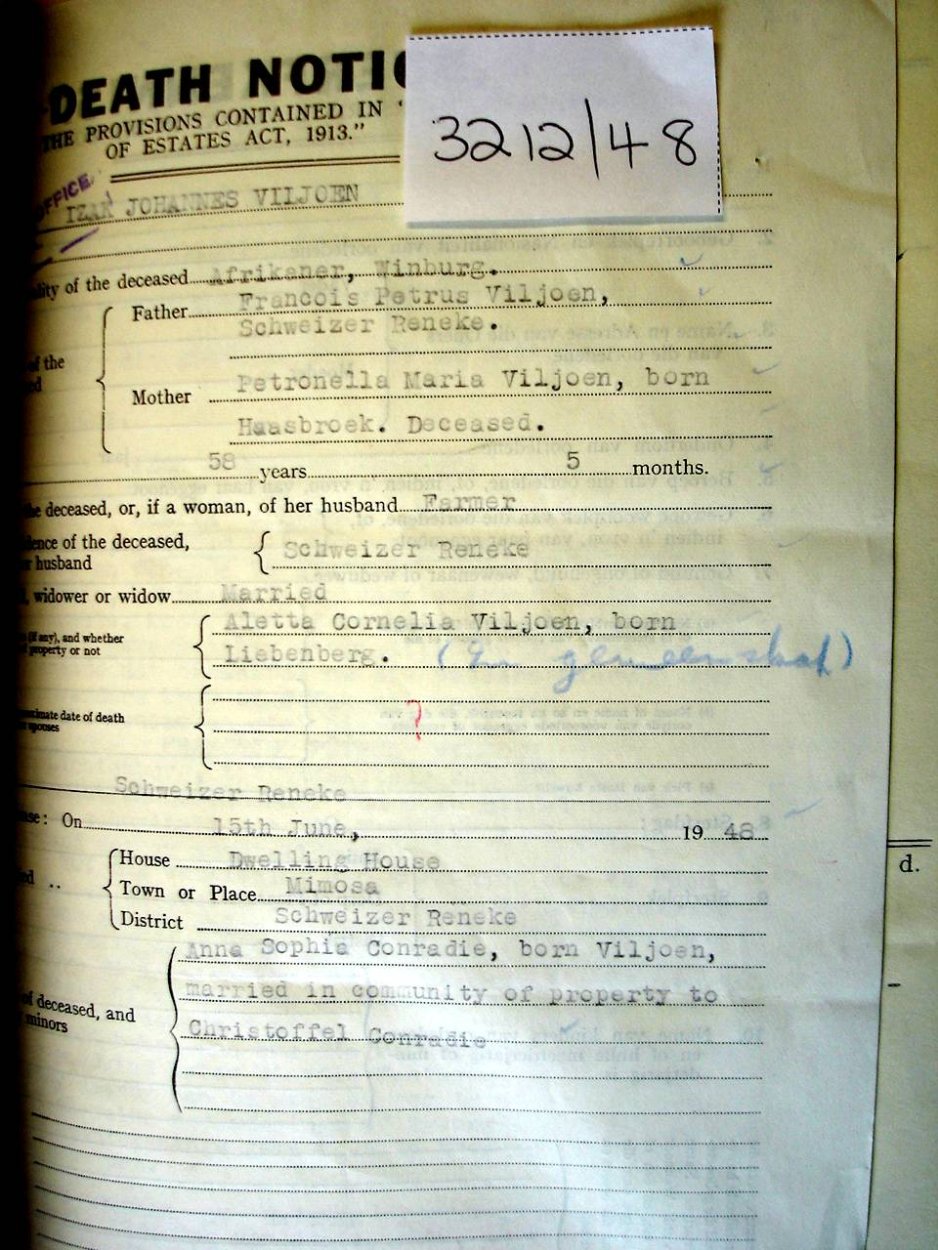 DEATH NOTIC
THE PROVISIONS CONTAINED IN "
OF ESTATES ACT, 1913."
3212/48
OFFICE
IZAK JOHANNES VILJOEN
lity of the deceased Afrikaner, Winburg.
Father Francois Petrus Viljoen,
Schweizer Reneke.
of the
Mother Petronella Maria Viljoen, born
Haasbroek. Deceased.
58 years 5 months.
deceased, or, if a woman, of her husband Farmer
ence of the deceased, Schweizer Reneke
husband
widower or widow Married
(if any), and whether Aletta Cornelia Viljoen, born
property or not Liebenberg. (In gemeenskap)
ximate date of death
spouses
?
Schweizer Reneke
se: On 15th June, 19 48
House Dwelling House
ed ..
Town or Place Mimosa
District Schweizer Reneke
d.
Anna Sophia Conradie, born Viljoen,
of deceased, and married in community of property to
minors Christoffel Conradie